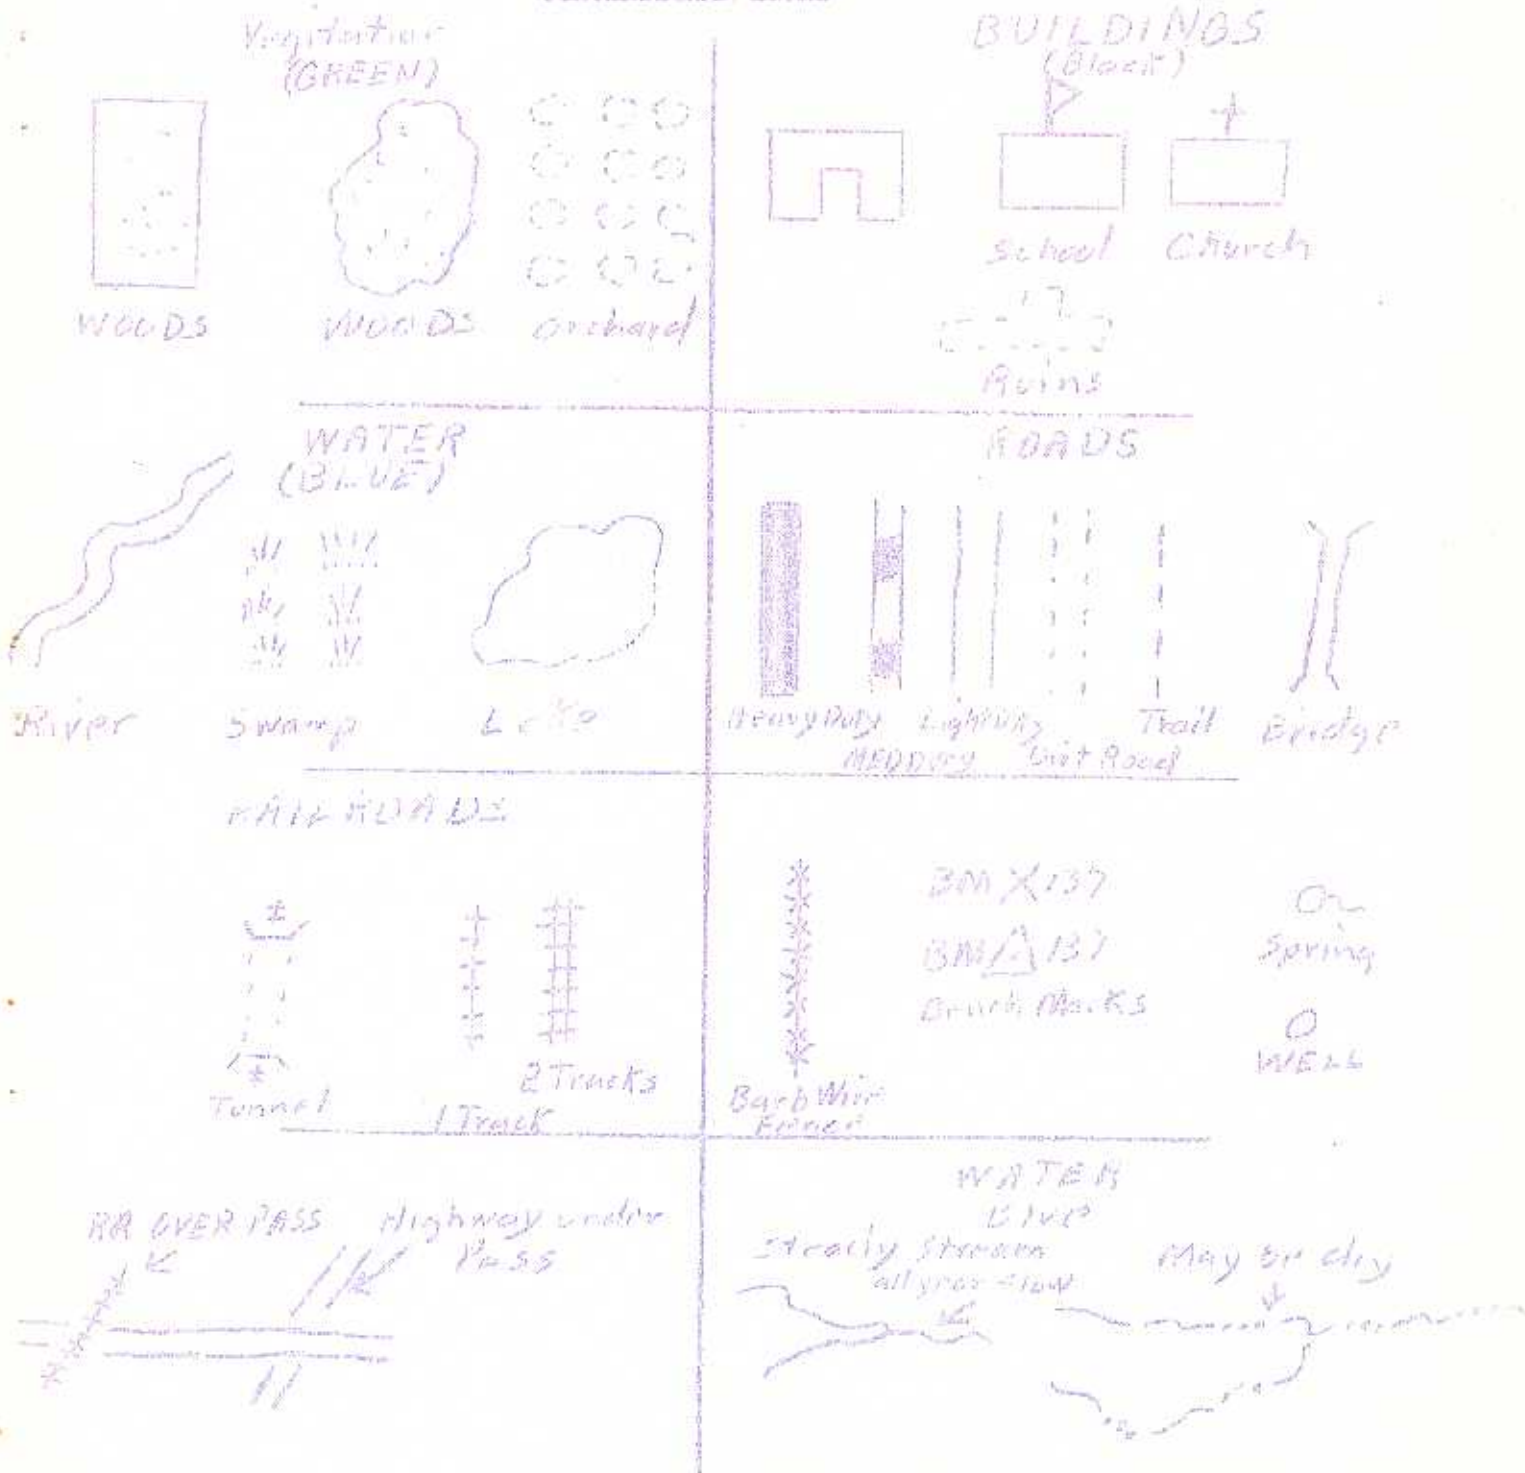 Vegitation
(GREEN)
WOODS
WOODS
Orchard
BUILDINGS
(Black)
School
Church
Ruins
WATER
(BLUE)
River
Swamp
Lake
ROADS
Heavy Duty
MED DUTY
Light Duty
Dirt Road
Trail
Bridge
RAILROADS
Tunnel
1 Track
2 Tracks
Barb Wire
Fence
BM X 137
BM △ 137
Marks
Spring
WELL
RR OVER PASS
Highway under
Pass
WATER
Blue
Steady Stream
all year flow
May be dry